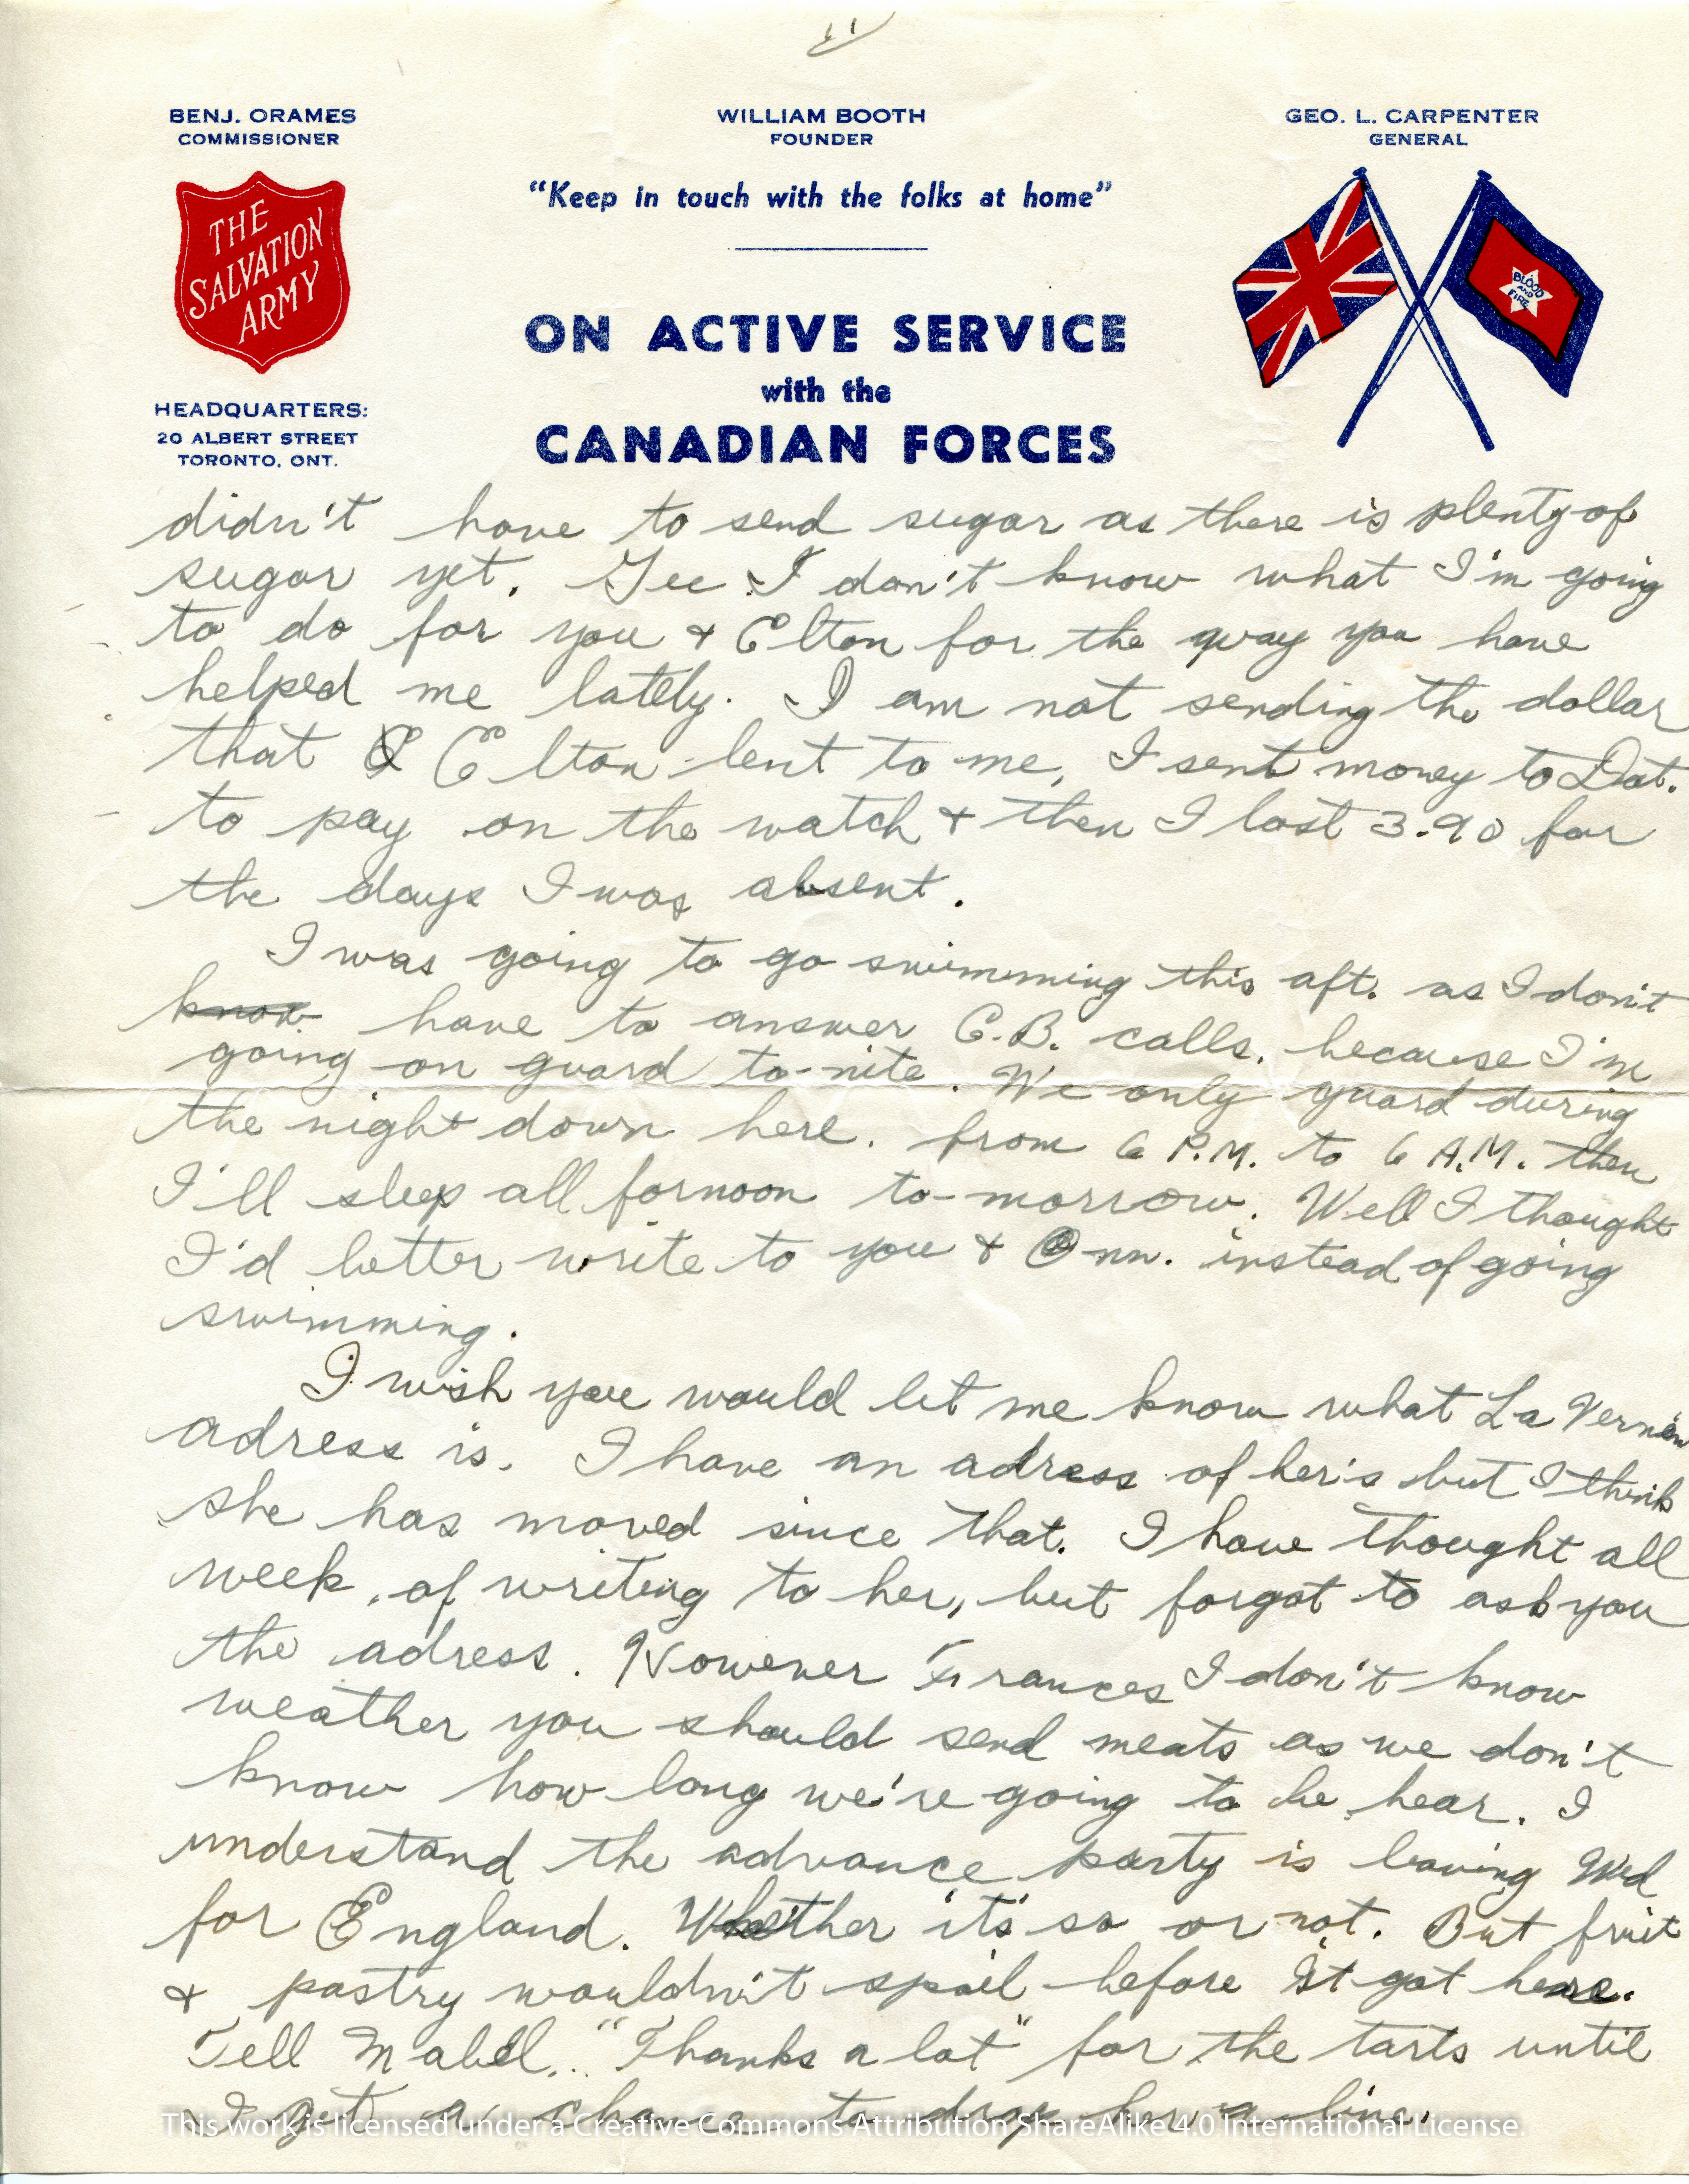 BENJ. ORAMES
COMMISSIONER
WILLIAM BOOTH
FOUNDER
GEO. L. CARPENTER
GENERAL
"Keep in touch with the folks at home"
THE
SALVATION
ARMY
BLOOD
AND
FIRE
ON ACTIVE SERVICE
with the
CANADIAN FORCES
HEADQUARTERS:
20 ALBERT STREET
TORONTO, ONT.
didn't have to send sugar as there is plenty of
sugar yet. Gee I don't know what I'm going
to do for you & Elton for the way you have
helped me lately. I am not sending the dollar
that Elton lent to me, I sent money to Dat.
to pay on the watch & then I lost 3.90 for
the days I was absent.
I was going to go swimming this aft. as I don't
know have to answer C.B. calls, because I'm
going on guard to-nite. We only guard during
the night down here. from 6 P.M. to 6 A.M. then
I'll sleep all fornoon to-morrow. Well I thought
I'd better write to you & Onn. instead of going
swimming.
I wish you would let me know what La Verne's
adress is. I have an adress of her's but I think
she has moved since that. I have thought all
week, of writing to her, but forgot to ask you
the adress. However Frances I don't know
weather you should send meats as we don't
know how long we're going to be hear. I
understand the advance party is leaving Wed
for England. Whether it's so or not. But fruit
& pastry wouldn't spoil before it got here.
Tell Mabel. "Thanks a lot" for the tarts until
I get a chance to drop her a line.
This work is licensed under a Creative Commons Attribution ShareAlike 4.0 International License.